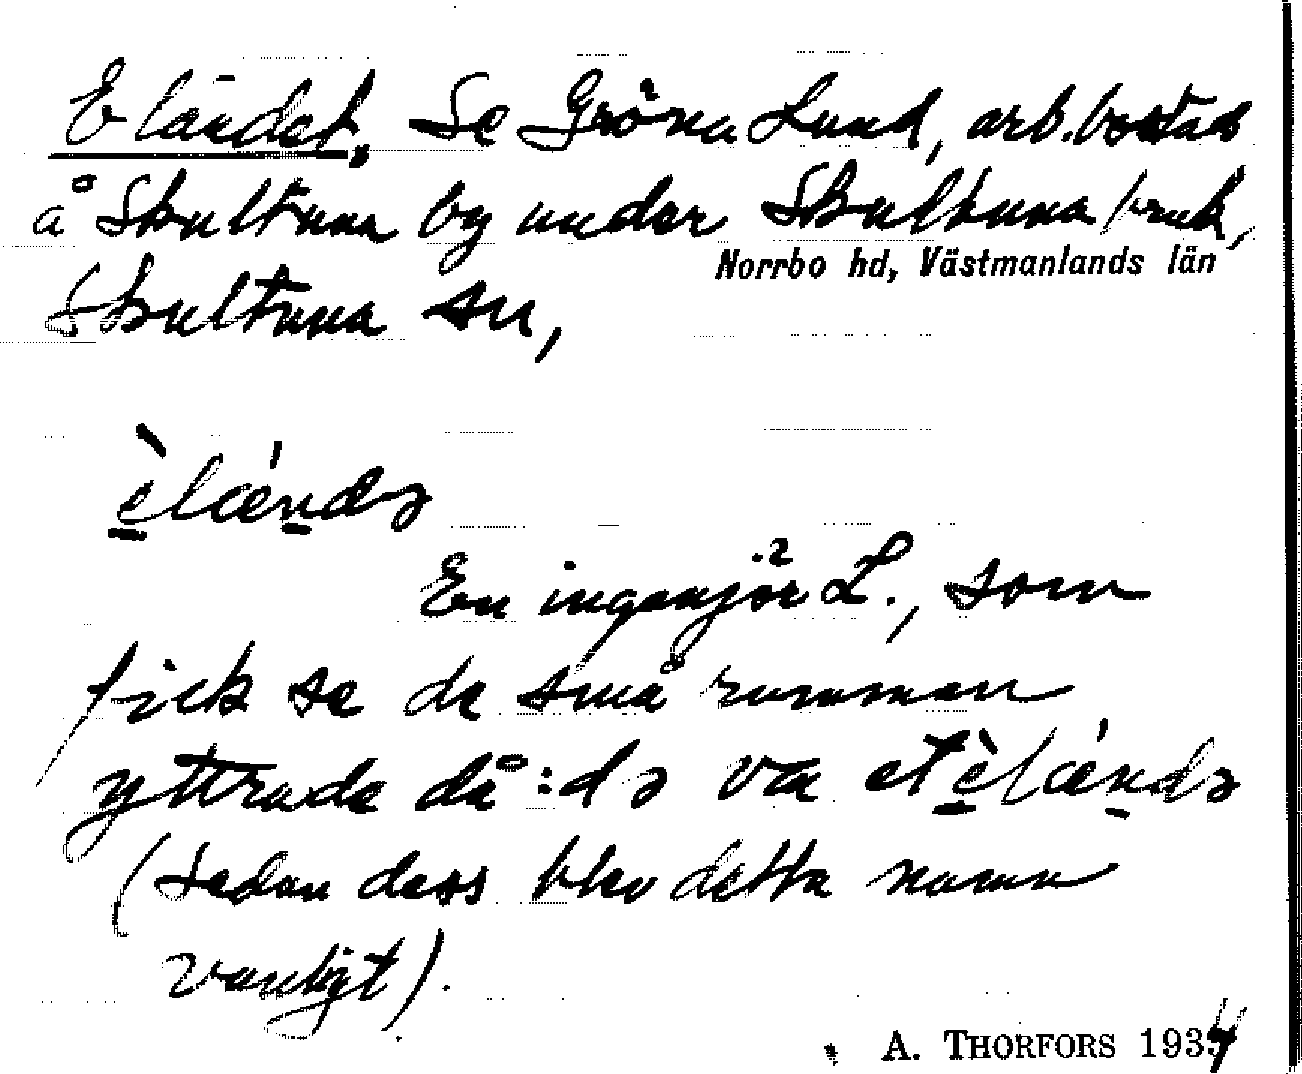 Eländet, Se Gröna Lund, arb.bostad
å Skultuna by under Skultuna bruk,
Norrbo hd, Västmanlands län
Skultuna sn,
è̠lǽn̠də
En ingenjör L., som
fick se de små rummen
yttrade då: d ə va et è̠lǽn̠də
(sedan dess blev detta namn
vanligt).
A. THORFORS 1934